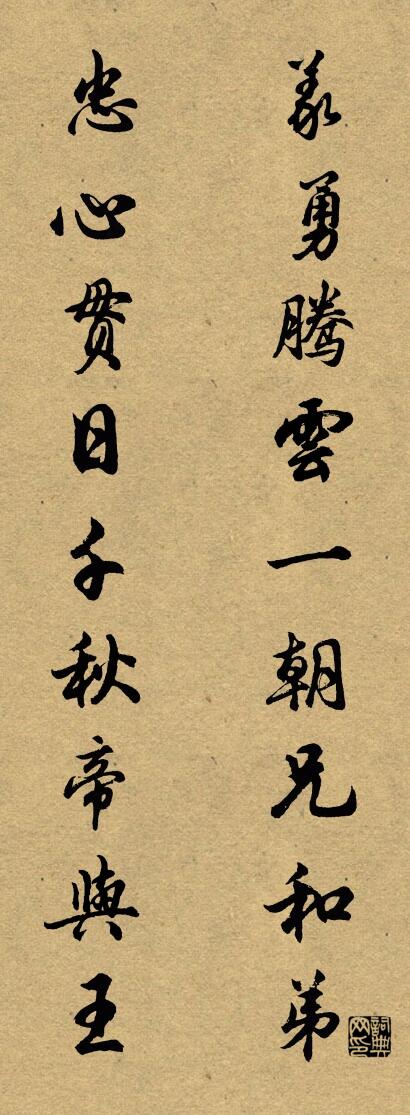 義勇騰雲一朝兄和弟
忠心貫日千秋帝與王
詞典網印